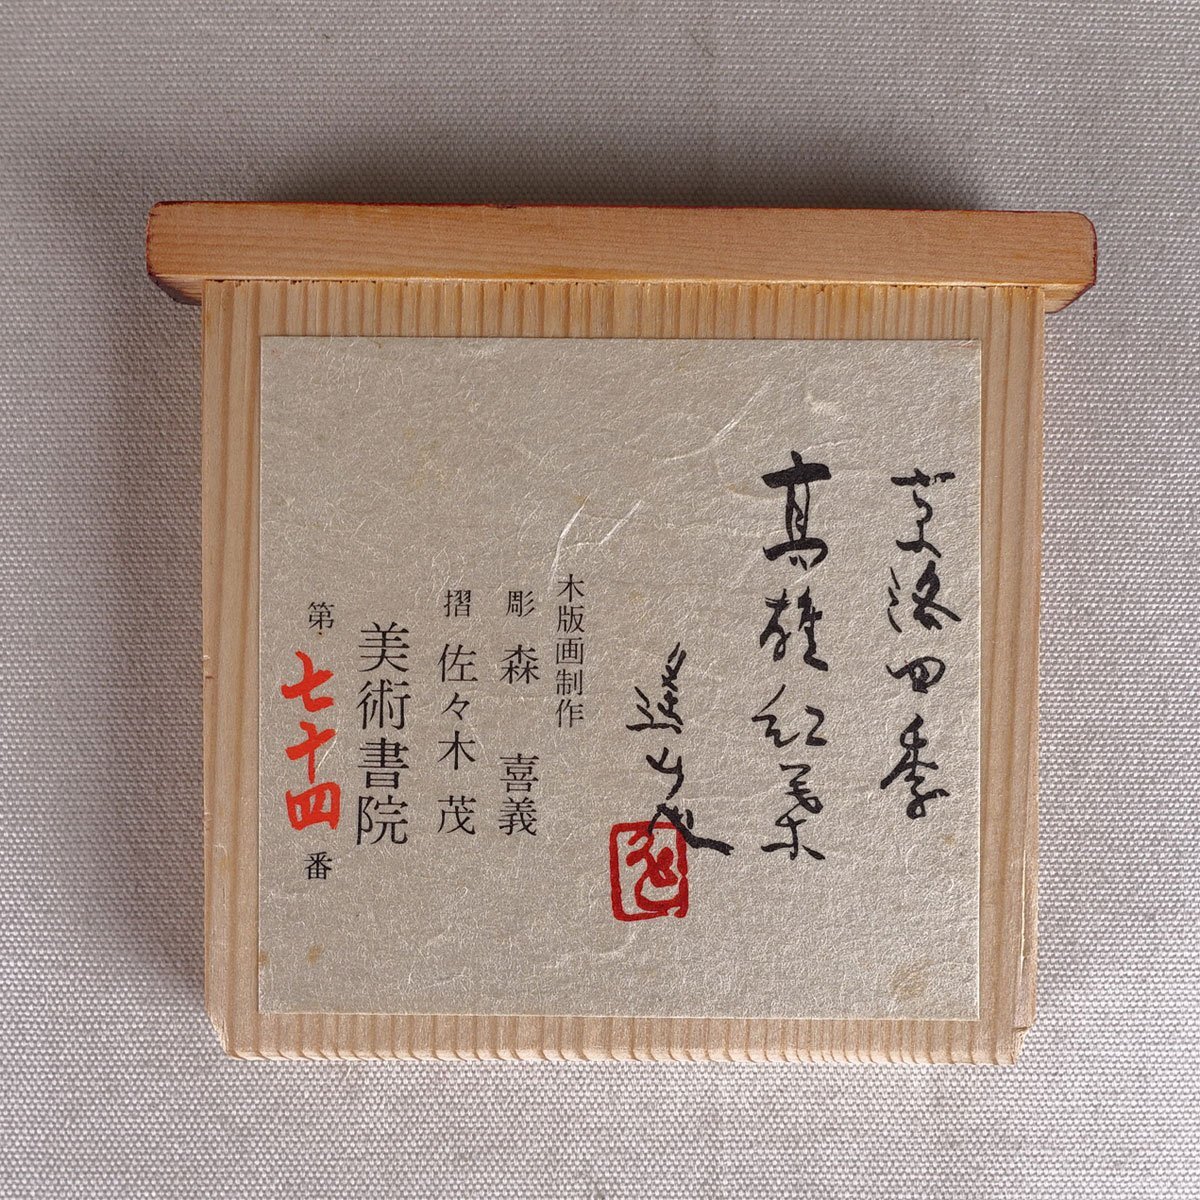 京洛四季
高雄紅葉
木版画制作
彫 森 喜義
摺 佐々木 茂
美術書院
第七十四番